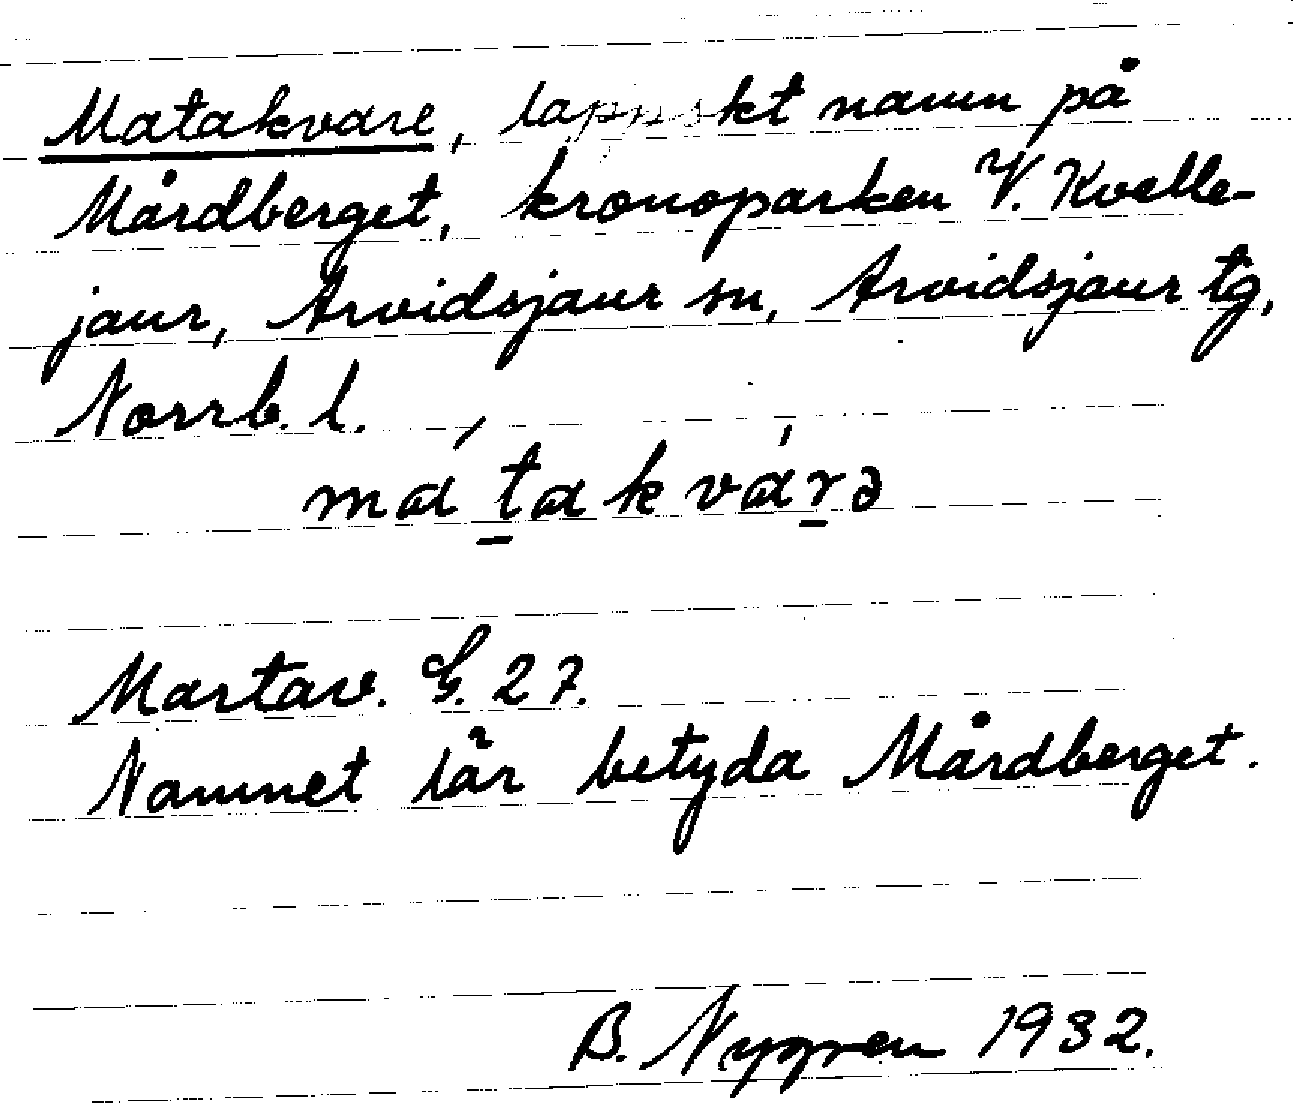 Matakvare, lappskt namn på
Mårdberget, kronoparken V. Kvelle-
jaur, Arvidsjaur sn, Arvidsjaur tg,
Norrb. l.
mátakvárə
Martav. G. 27.
Namnet lär betyda Mårdberget.
B. Nygren 1932.